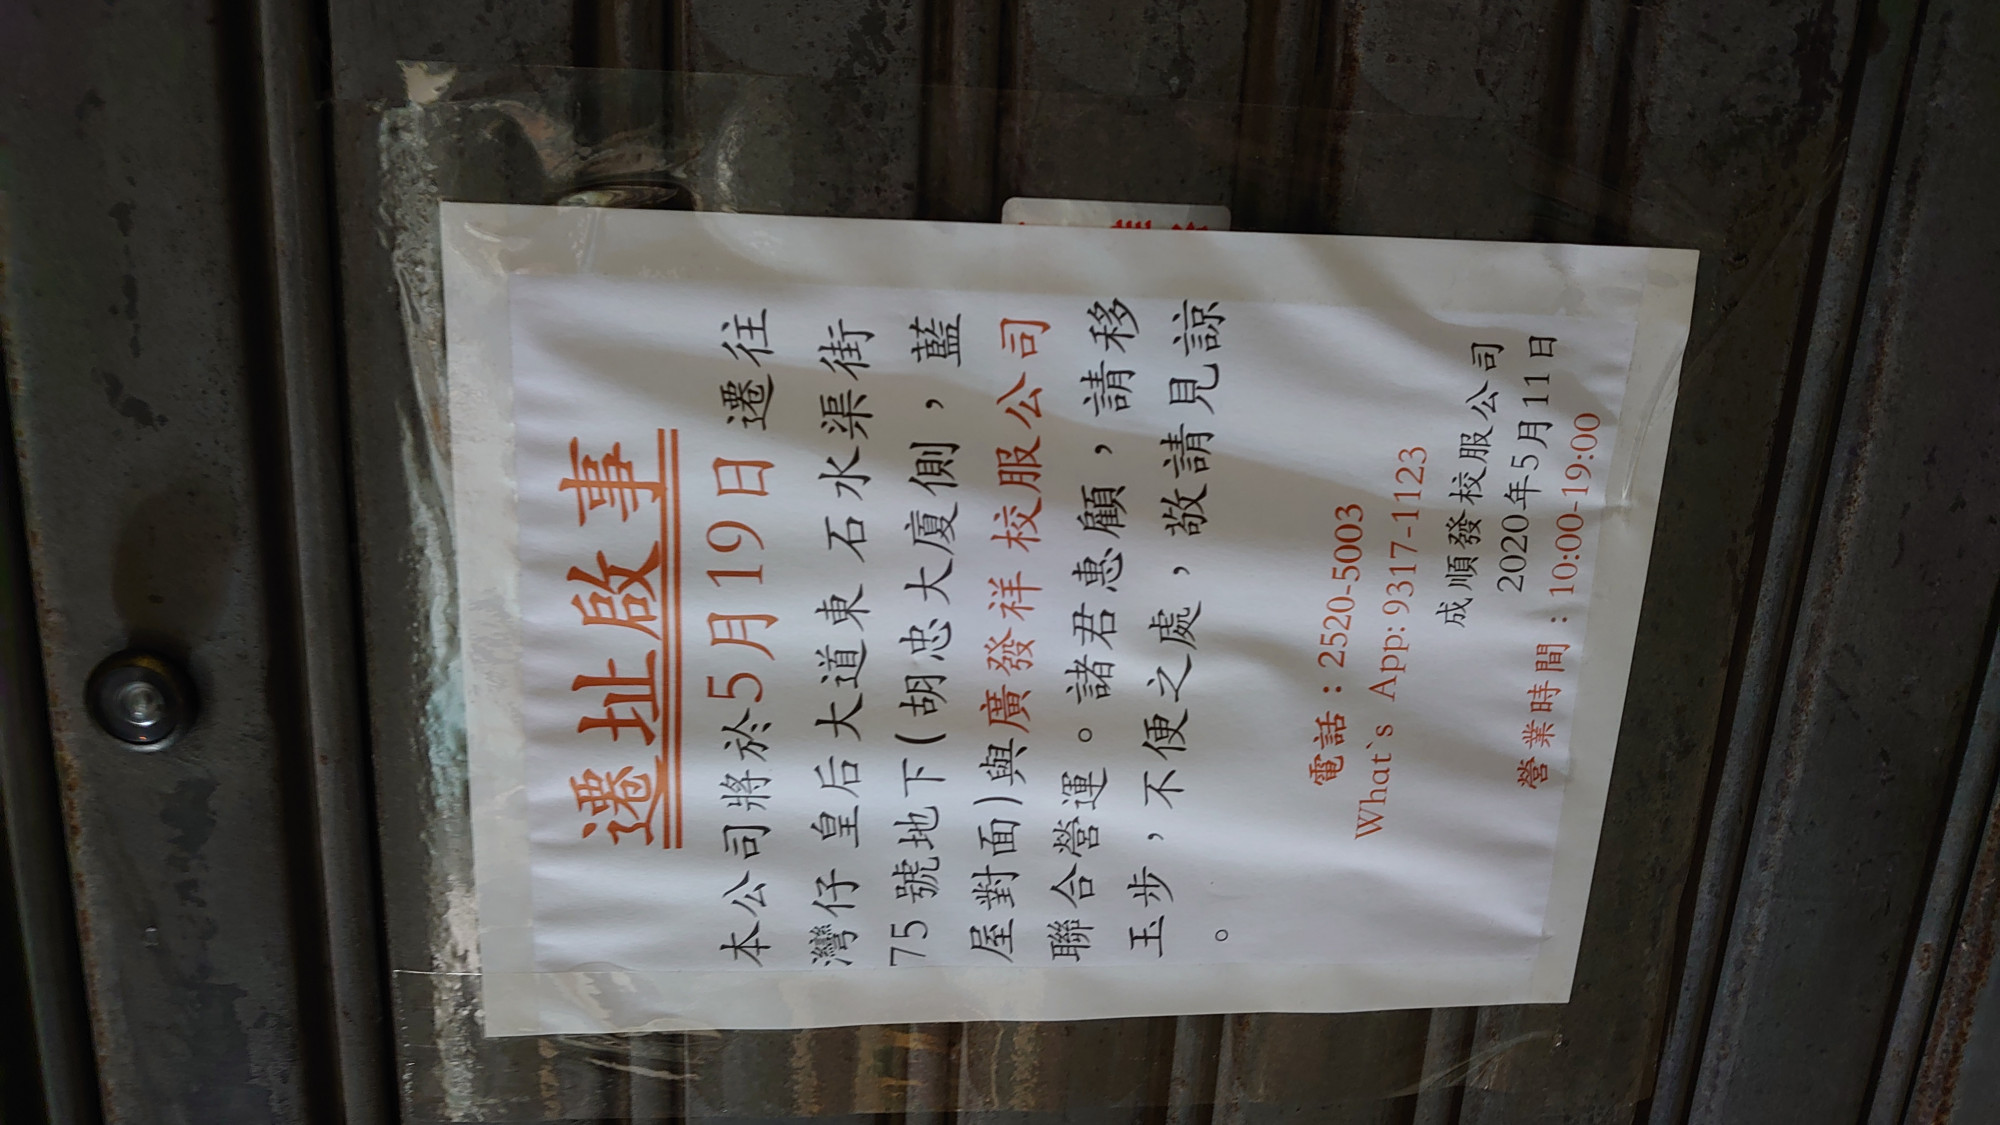 遷址啟事
本公司將於5月19日 遷往
灣仔皇后大道東石水渠街
75號地下(胡忠大廈側，藍
屋對面)與廣發祥校服公司
聯合營運。諸君惠顧，請移
玉步，不便之處，敬請見諒
。
電話：2520-5003
What`s App: 9317-1123
成順發校服公司
2020年5月11日
營業時間：10:00-19:00